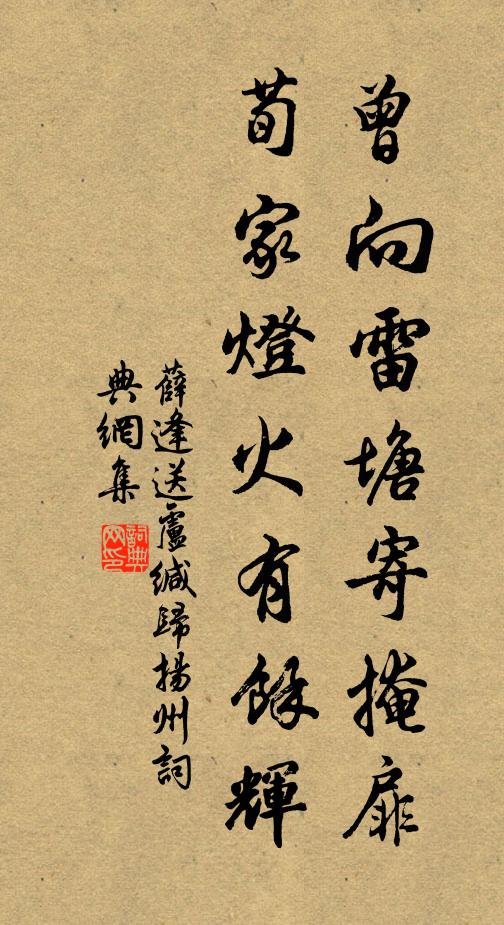 曾向雷塘寄掩扉
荀家燈火有餘輝
薛逢送盧緘歸揚州詞
典網集
詞典网印